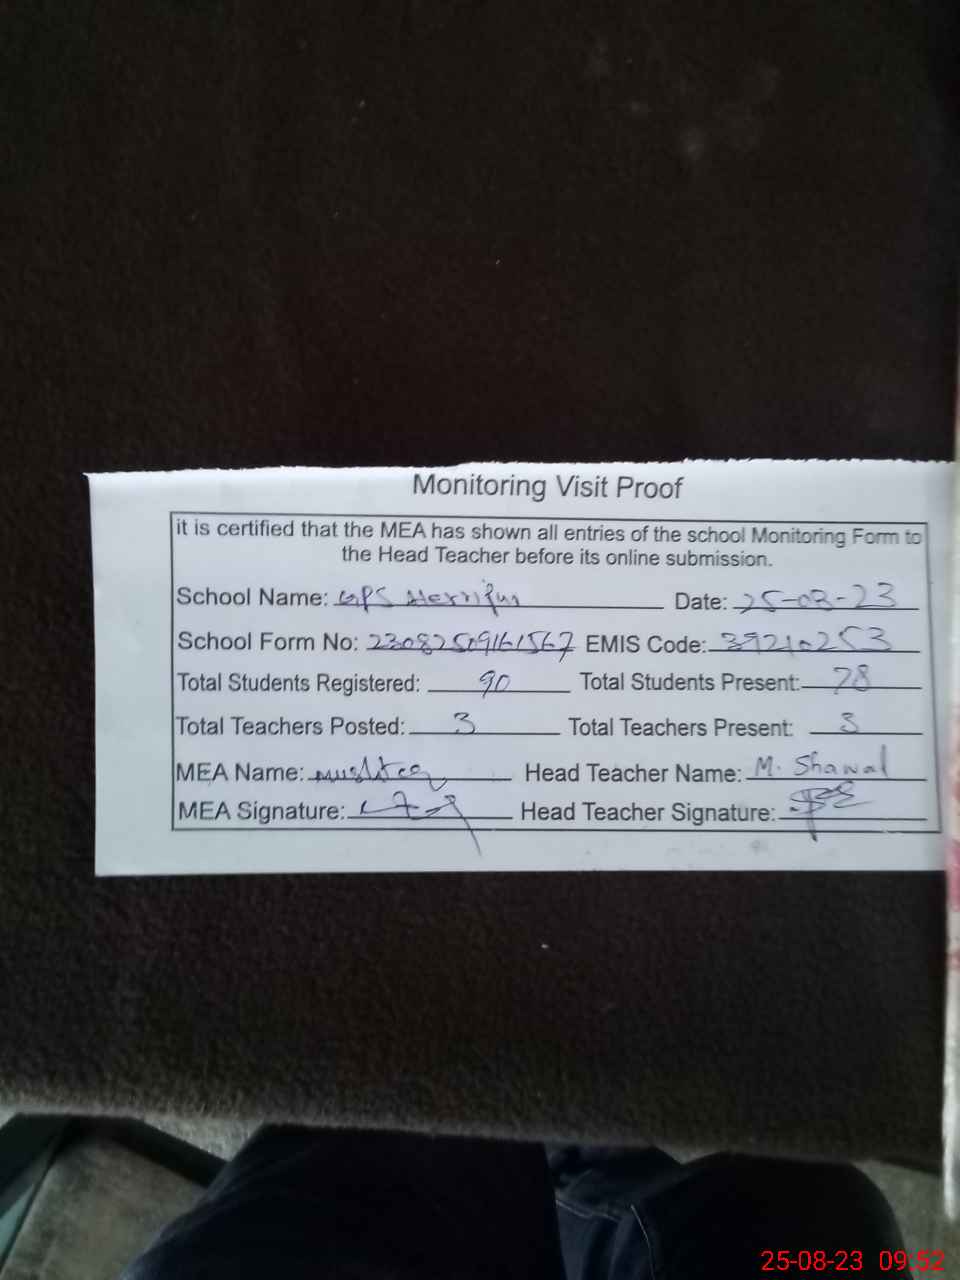 Monitoring Visit Proof
it is certified that the MEA has shown all entries of the school Monitoring Form to
the Head Teacher before its online submission.
School Name: GPS Date: 25-08-23
School Form No: 23082509161567 EMIS Code: 39210253
Total Students Registered: 90 Total Students Present: 78
Total Teachers Posted: 3 Total Teachers Present: 3
MEA Name: Mushtaq Head Teacher Name: M. Shawal
MEA Signature: Head Teacher Signature:
25-08-23 09:52